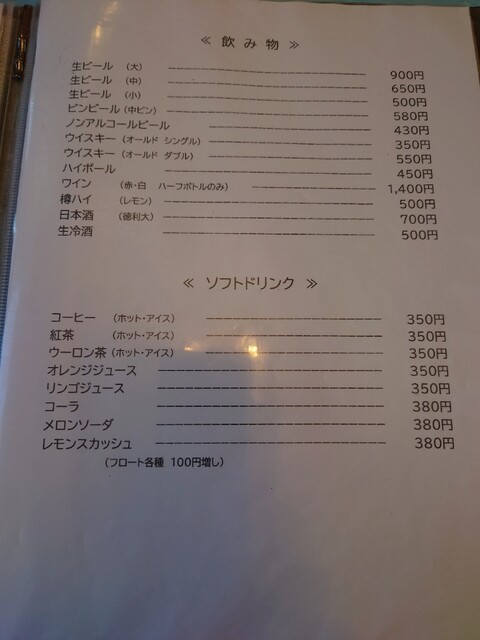 ≪ 飲み物 ≫
生ビール (大) 900円
生ビール (中) 650円
生ビール (小) 500円
ビンビール (中ビン) 580円
ノンアルコールビール 430円
ウイスキー (オールド シングル) 350円
ウイスキー (オールド ダブル) 550円
ハイボール 450円
ワイン (赤・白 ハーフボトルのみ) 1,400円
樽ハイ (レモン) 500円
日本酒 (徳利大) 700円
生冷酒 500円
≪ ソフトドリンク ≫
コーヒー (ホット・アイス) 350円
紅茶 (ホット・アイス) 350円
ウーロン茶 (ホット・アイス) 350円
オレンジジュース 350円
リンゴジュース 350円
コーラ 380円
メロンソーダ 380円
レモンスカッシュ 380円
(フロート各種 100円増し)